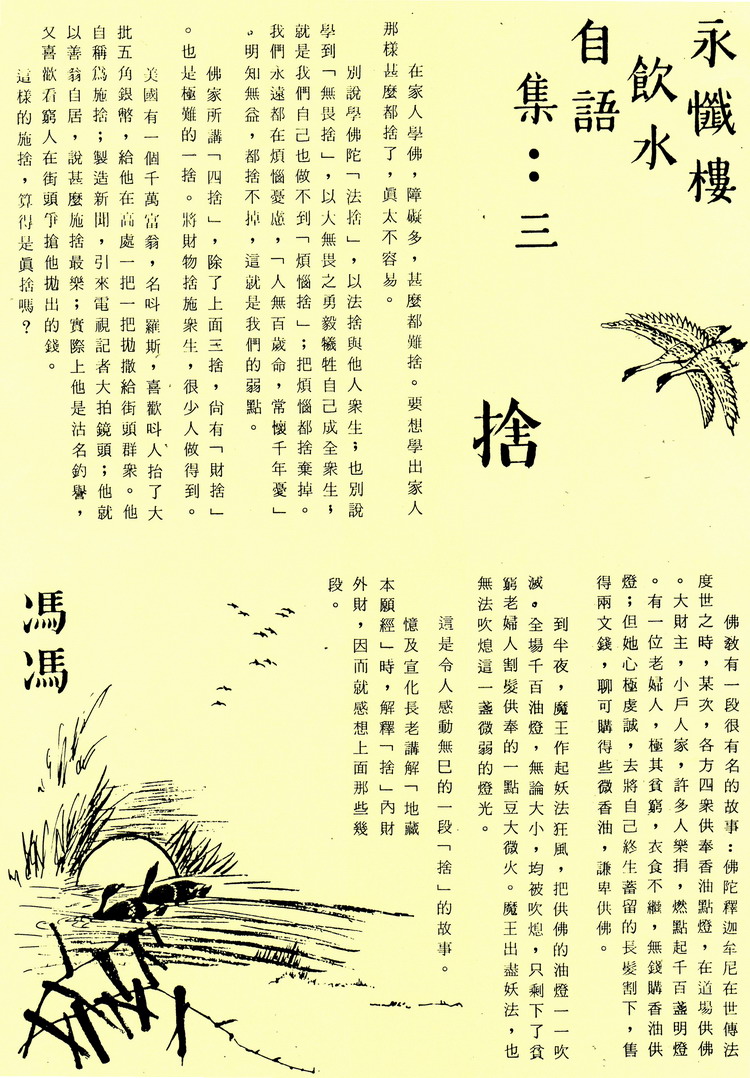 永懺樓
飲水
自語
集：三
捨
在家人學佛，障礙多，甚麼都難捨。要想學出家人
那樣甚麼都捨了，眞太不容易。
別說學佛陀「法捨」，以法捨與他人衆生；也別說
學到「無畏捨」，以大無畏之勇毅犧牲自己成全衆生；
就是我們自己也做不到「煩惱捨」；把煩惱都捨棄掉。
我們永遠都在煩惱憂慮，「人無百歲命，常懷千年憂」
。明知無益，都捨不掉，這就是我們的弱點。
佛家所講「四捨」，除了上面三捨，尙有「財捨」
。也是極難的一捨。將財物捨施衆生，很少人做得到。
美國有一個千萬富翁，名呌羅斯，喜歡呌人抬了大
批五角銀幣，給他在高處一把一把拋撒給街頭群衆。他
自稱爲施捨；製造新聞，引來電視記者大拍鏡頭；他就
以善翁自居，說甚麼施捨最樂；實際上他是沽名釣譽，
又喜歡看窮人在街頭爭搶他拋出的錢。
這樣的施捨，算得是眞捨嗎？
佛教有一段很有名的故事：佛陀釋迦牟尼在世傳法
度世之時，某次，各方四衆供奉香油點燈，在道場供佛
。大財主，小戶人家，許多人樂捐，燃點起千百盞明燈
。有一位老婦人，極其貧窮，衣食不繼，無錢購香油供
燈；但她心極虔誠，去將自己終生蓄留的長髮割下，售
得兩文錢，聊可購得些微香油，謙卑供佛。
到半夜，魔王作起妖法狂風，把供佛的油燈一一吹
滅。全場千百油燈，無論大小，均被吹熄，只剩下了貧
窮老婦人割髮供奉的一點豆大微火。魔王出盡妖法，也
無法吹熄這一盞微弱的燈光。
這是令人感動無巳的一段「捨」的故事。
憶及宣化長老講解「地藏
本願經」時，解釋「捨」內財
外財，因而就感想上面那些幾
段。
馮馮